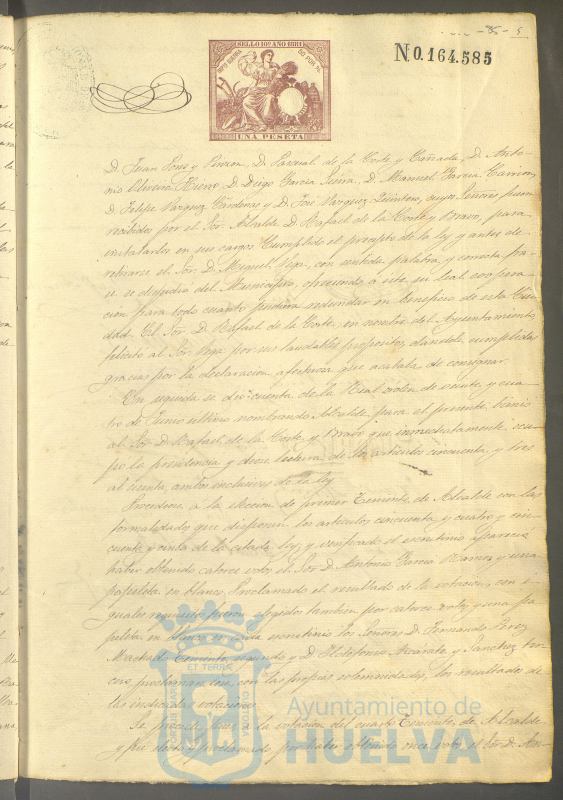 SELLO 10º AÑO 1881
UNA PESETA
N.0.164.585
D. Juan Pons y D. Pascual de la Corte y Cañada, D. Anto-
nio Oliveira Hierro, D. Diego Garcia D. Manuel Garcia Carrion,
D. Felipe Vazquez Cárdenas y D. José Vazquez Quintero, cuyos Señores fueron
recibidos por el Sor. Alcalde D. Rafael de la Corte y Bravo, para
instalarlos en sus cargos. Cumplido el precepto de la ley y antes de
retirarse el Sor. D. Miguel Vega, con sentida palabra, y correcta fra-
se se despidió del Municipio, ofreciendo á este su leal coopera-
cion para todo cuanto pudiera redundar en beneficio de esta Ciu-
dad. El Sor. D. Rafael de la Corte, en nombre del Ayuntamiento
felicitó al Sor. Vega por sus laudables propósitos, dándole cumplidas
gracias por la declaracion afectuosa que acababa de consignar.
En seguida se dió cuenta de la Real órden de veinte y cua-
tro de Junio último nombrando Alcalde, para el presente bienio
al Sor. D. Rafael de la Corte y Bravo que inmediatamente ocu-
pó la presidencia y diose lectura de los artículos cincuenta y tres
al sesenta, ambos inclusives de la ley.
Procediose á la eleccion de primer Teniente de Alcalde con las
formalidades que disponen los artículos cincuenta y cuatro y cin-
cuenta y cinco de la citada ley, y verificado el escrutinio aparecio
haber obtenido catorce votos el Sor. D. Antonio Garcia Ramos y una
papeleta en blanco. Proclamado el resultado de la votacion, con i-
guales requisitos fueron elegidos tambien por catorce votos y una pa-
peleta en blanco en cada escrutinio los Señores D. Fernando Perez
Machado Teniente segundo y D. Ildefonso y Sanchez ter-
cero, proclamandose, con las propias solemnidades, los resultados de
las indicadas votaciones.
Se procedió á la votacion del cuarto Teniente de Alcalde
y fué electo y proclamado por haber obtenido once votos el Sor. D. An-
Ayuntamiento de
HUELVA